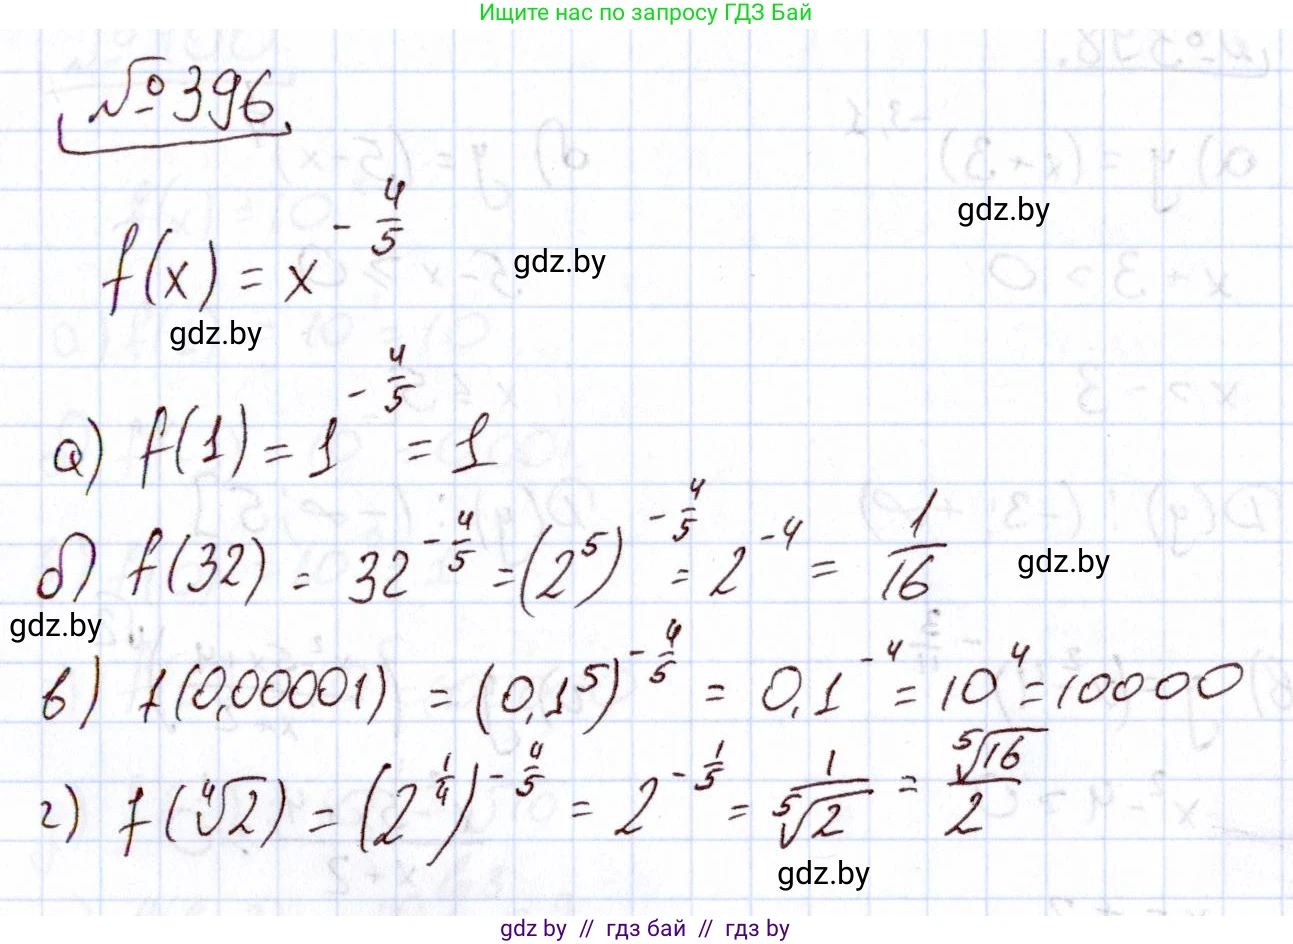 Ищите нас по запросу ГДЗ Бай
№ 396
f(x) = x^(-4/5)
gdz.by
gdz.by
gdz.by
а) f(1) = 1^(-4/5) = 1
б) f(32) = 32^(-4/5) = (2^5)^(-4/5) = 2^(-4) = 1/16
gdz.by
gdz.by
в) f(0,00001) = (0,1^5)^(-4/5) = 0,1^(-4) = 10^4 = 10000
г) f(⁴√2) = (2^(1/4))^(-4/5) = 2^(-1/5) = 1/⁵√2 = ⁵√16/2
gdz.by
gdz.by // гдз бай // gdz.by